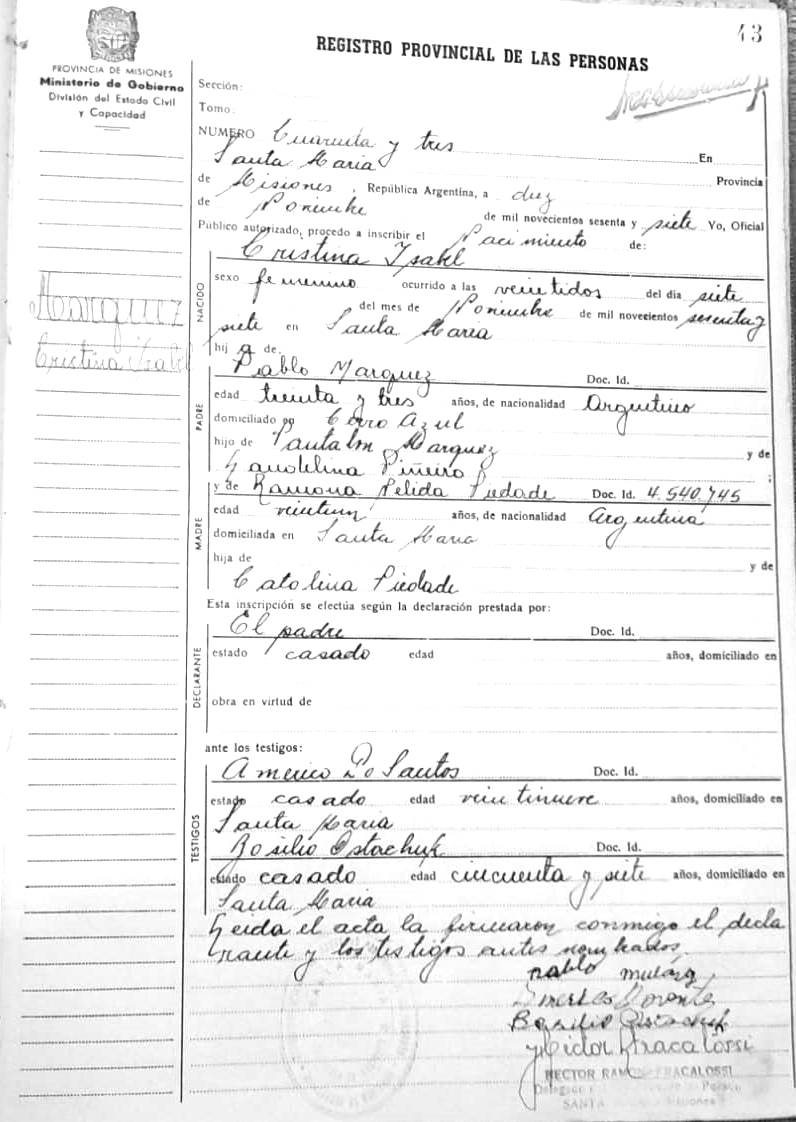 43
REGISTRO PROVINCIAL DE LAS PERSONAS
PROVINCIA DE MISIONES
Ministerio de Gobierno
División del Estado Civil
y Capacidad
Sección:
Tomo:
NUMERO Cuarenta y tres
Santa Maria En
de Misiones, República Argentina, a diez Provincia
de Noviembre de mil novecientos sesenta y siete Yo, Oficial
Público autorizado, procedo a inscribir el Nacimiento de:
Cristina Isabel
NACIDO
sexo femenino ocurrido a las veintidos del día siete
del mes de Noviembre de mil novecientos sesenta y
siete en Santa Maria
Marquez
Cristina Isabel
hija de.
PADRE
Pablo Marquez Doc. Id.
edad treinta y tres años, de nacionalidad Argentino
domiciliado en Cerro Azul
hijo de Pantaleon Marquez y de
Piñeiro ;
MADRE
y de Ramona Nelida Piedade Doc. Id. 4.540.745
edad veintiun años, de nacionalidad Argentina
domiciliada en Santa Maria
hija de y de
Catolina Piedade
Esta inscripción se efectúa según la declaración prestada por:
DECLARANTE
El padre Doc. Id.
estado casado edad años, domiciliado en
obra en virtud de
ante los testigos:
TESTIGOS
Americo Do Santos Doc. Id.
estado casado edad veintinueve años, domiciliado en
Santa Maria
Bosilio Ostachuk Doc. Id.
estado casado edad cincuenta y siete años, domiciliado en
Santa Maria
Leida el acta la firmaron conmigo el decla
rante y los testigos antes nombrados.
Pablo
Basilio
Hector Fracalossi
HECTOR RAMON FRACALOSSI
Delegado
SANTA